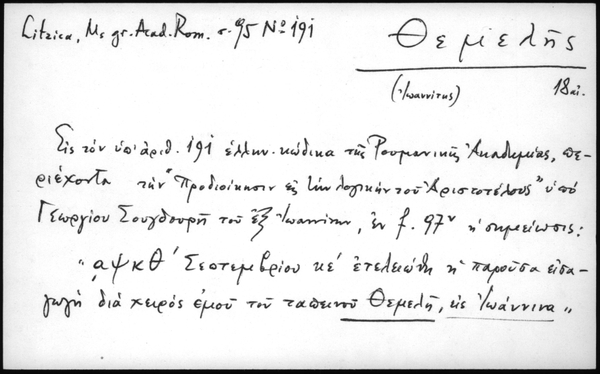 Litzica, Ms gr. Acad. Rom. σ. 95 Nº 191
Θεμελῆς
(Ἰωαννίτης) 18 αἰ.
Εἰς τὸν ὑπ' ἀριθ. 191 ἑλλην. κώδικα τῆς Ρουμανικῆς Ἀκαδημίας, πε-
ριέχοντα τὴν "Προδιοίκησιν εἰς τὴν λογικὴν τοῦ Ἀριστοτέλους" ὑπὸ
Γεωργίου Σουγδουρῆ τοῦ ἐξ Ἰωαννίνων, ἐν f. 97ᵛ ἡ σημείωσις:
"͵αψκθ´ Σεπτεμβρίου κε´ ἐτελειώθη ἡ παροῦσα εἰσα-
γωγὴ διὰ χειρὸς ἐμοῦ τοῦ ταπεινοῦ Θεμελῆ, εἰς Ἰωάννινα"